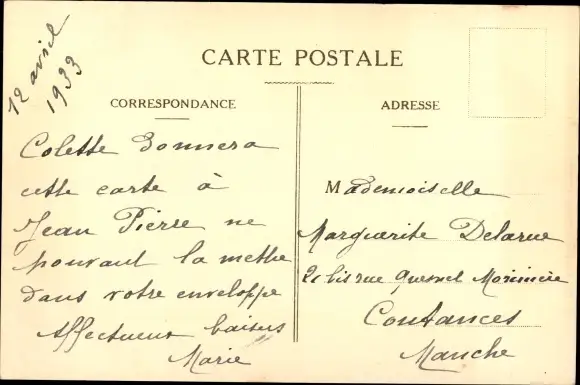 12 avril
1933
CARTE POSTALE
CORRESPONDANCE
Colette donnera
cette carte à
Jean Pierre ne
pouvant la methe
dans votre enveloppe
Affectueux baisers
Marie
ADRESSE
Mademoiselle
Marguerite Delarue
2 bis rue Quesnel Morinière
Coutances
Manche